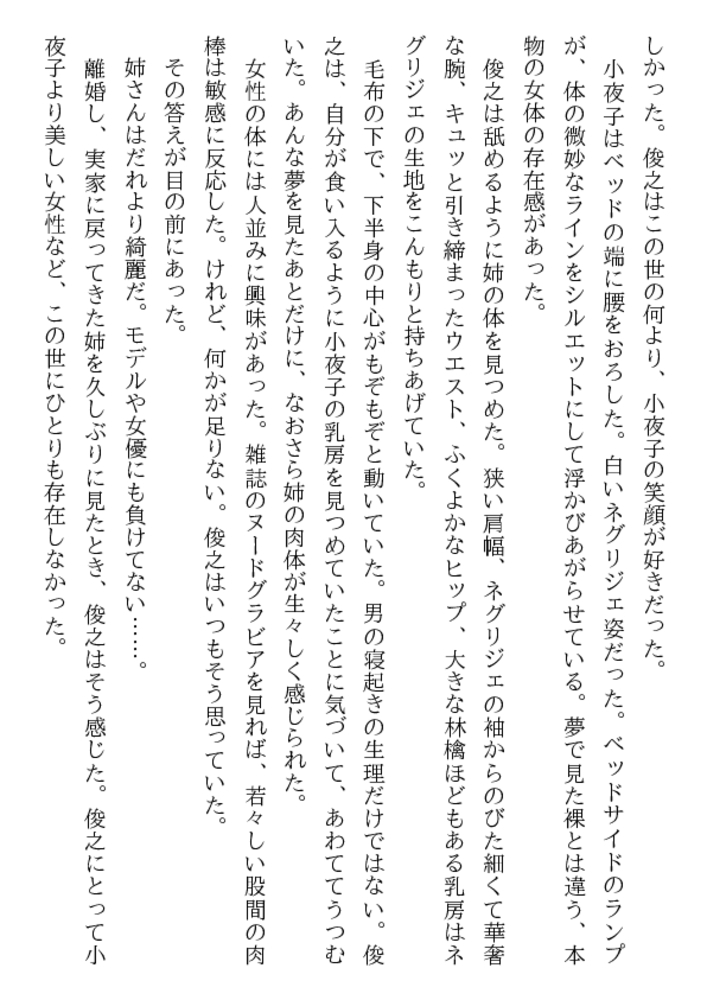 しかった。俊之はこの世の何より、小夜子の笑顔が好きだった。
　小夜子はベッドの端に腰をおろした。白いネグリジェ姿だった。ベッドサイドのランプ
が、体の微妙なラインをシルエットにして浮かびあがらせている。夢で見た裸とは違う、本
物の女体の存在感があった。
　俊之は舐めるように姉の体を見つめた。狭い肩幅、ネグリジェの袖からのびた細くて華奢
な腕、キュッと引き締まったウエスト、ふくよかなヒップ、大きな林檎ほどもある乳房はネ
グリジェの生地をこんもりと持ちあげていた。
　毛布の下で、下半身の中心がもぞもぞと動いていた。男の寝起きの生理だけではない。俊
之は、自分が食い入るように小夜子の乳房を見つめていたことに気づいて、あわててうつむ
いた。あんな夢を見たあとだけに、なおさら姉の肉体が生々しく感じられた。
　女性の体には人並みに興味があった。雑誌のヌードグラビアを見れば、若々しい股間の肉
棒は敏感に反応した。けれど、何かが足りない。俊之はいつもそう思っていた。
　その答えが目の前にあった。
　姉さんはだれより綺麗だ。モデルや女優にも負けてない……。
　離婚し、実家に戻ってきた姉を久しぶりに見たとき、俊之はそう感じた。俊之にとって小
夜子より美しい女性など、この世にひとりも存在しなかった。